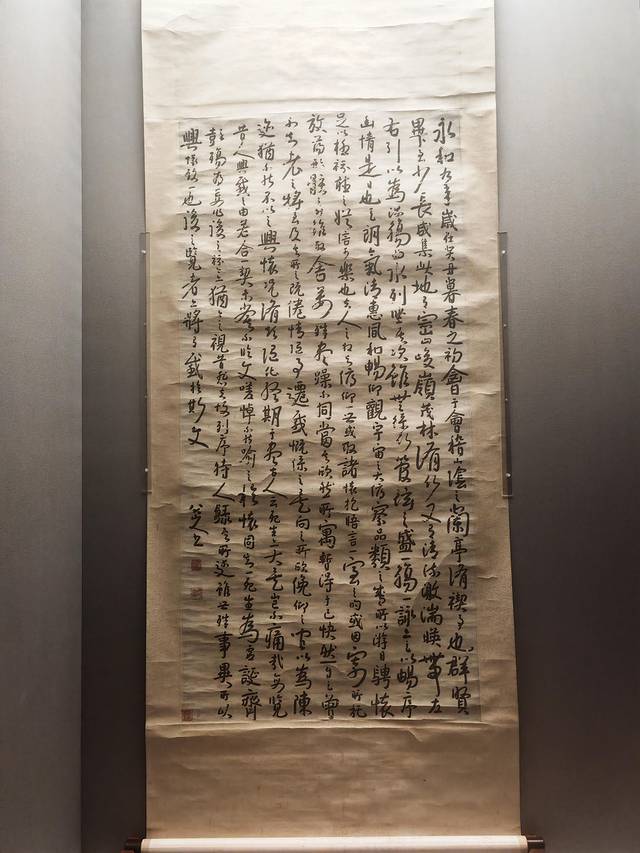 永和九年歲在癸丑暮春之初會于會稽山陰之蘭亭脩禊事也群賢
畢至少長咸集此地有崇山峻嶺茂林脩竹又有清流激湍映帶左
右引以為流觴曲水列坐其次雖無絲竹管弦之盛一觴一詠亦足以暢序
幽情是日也天朗氣清惠風和暢仰觀宇宙之大俯察品類之盛所以游目騁懷
足以極視聽之娛信可樂也夫人之相與俯仰一世或取諸懷抱晤言一室之內或因寄所託
放蕩形骸之外雖取舍萬殊躁不同當其欣然所寓暫得于己快然自足曾
不知老之將至及其所之既倦情隨事遷感慨係之矣向之所欣俛仰之間以為陳
迹猶不能不以之興懷況脩短隨化終期于盡古人云死生亦大矣豈不痛哉每覽
昔人興感之由若合契未嘗不臨文嗟悼不能喻之於懷固知一死生為虛誕齊
彭殤為妄作後之視今亦猶今之視昔悲夫故列序時人錄其所述雖世殊事異所以
興懷致一也後之覽者亦將有感於斯文